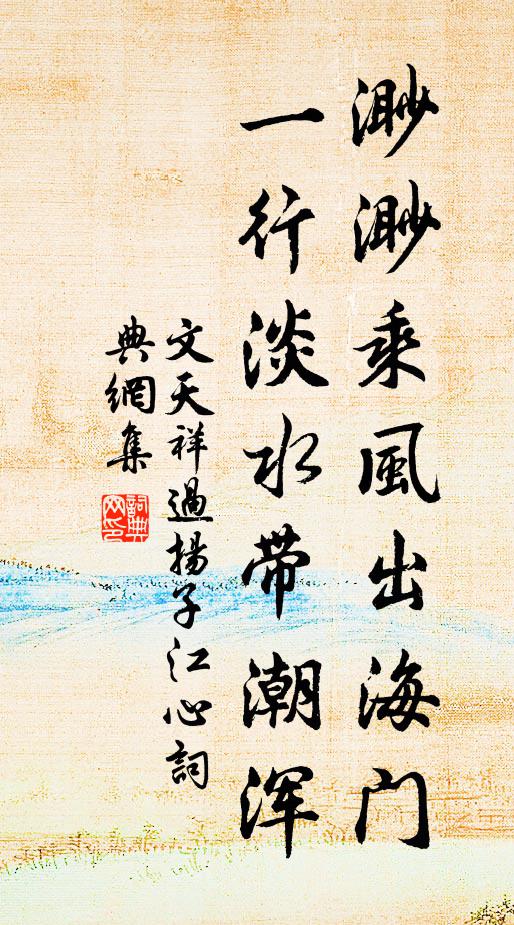 渺渺乘風出海门
一行淡水带潮浑
文天祥過揚子江心詞
典網集
詞典网印